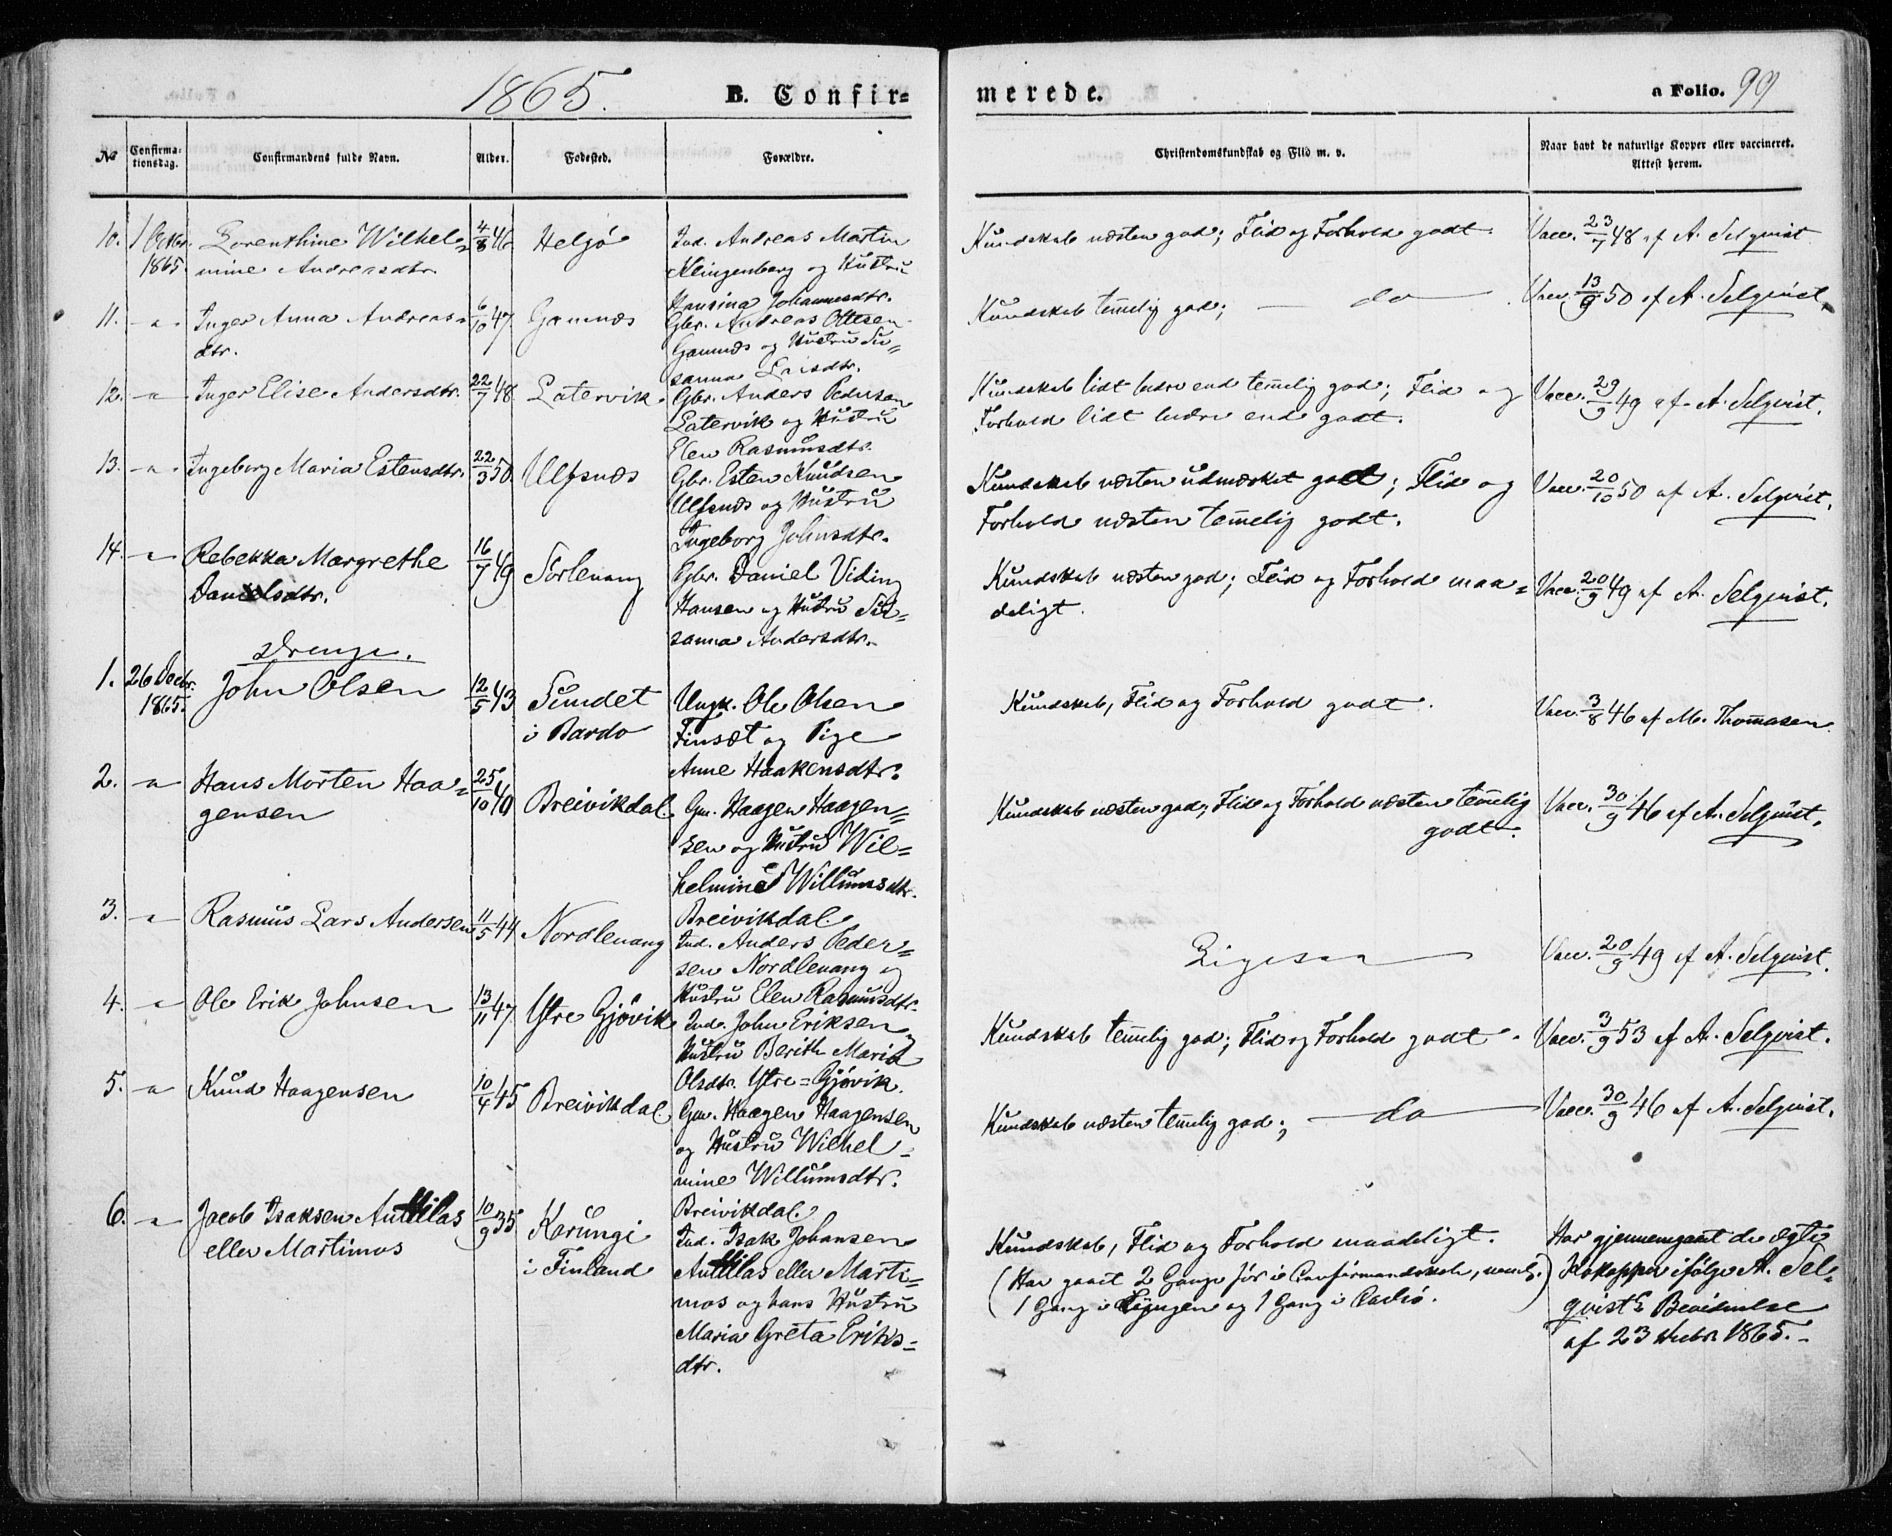 1865. B. Confir=
merede. a Folio. 99
No Confirma-tionsdag. Confirmandens fulde Navn. Alder. Fødested. Forældre. Christendomskundskab og Flid m. v. Naar havt de naturlige Kopper eller vaccineret. Attest herom.
10. 1 Octbr. 1865. Lorenthine Wilhel=
mine Andreasdtr. 4/8 46 Heljø
Ind. Andreas Martin
Klingenberg og Hustru
Hansina Johannesdtr.
Kundskab næsten god; Flid og Forhold godt.
Vacc. 23/7 48 af A. Selqvist
11. -"- Inger Anna Andreas=
dtr. 6/10 47 Gamnæs
Gbr. Andreas Ottesen
Gamnæs og Hustru Su=
sanna Larsdtr.
Kundskab temelig god; do
Vacc. 13/9 50 af A. Selqvist.
12. -"- Inger Elise Andersdtr. 22/7 48 Latervik.
Gbr. Anders Pedersen
Latervik og Hustru
Elen Rasmusdtr.
Kundskab lidt bedre end temelig god; Flid og
Forhold lidt bedre end godt.
Vacc. 29/9 49 af A. Selqvist.
13. -"- Ingeborg Maria Estensdtr. 22/3 50. Ulfsnæs
Gbr. Esten Knudsen
Ulfsnæs og Hustru
Ingeborg Johnsdtr.
Kundskab næsten udmærket god; Flid og
Forhold næsten temelig godt.
Vacc. 20/10 50 af A. Selqvist.
14. -"- Rebekka Margrethe
Danielsdtr. 16/7 49 Sørlenang
Gbr. Daniel Viding
Hansen og Hustru Su=
sanna Andersdtr.
Kundskab næsten god; Flid og Forhold maa=
deligt.
Vacc. 20/9 49 af A. Selqvist.
Drenge.
1. 26 Decbr. 1865. John Olsen 12/5 43 Sundet
i Bardo
Ungk. Ole Olsen
Finsæt og Pige
Anne Haakensdtr.
Kundskab, Flid og Forhold godt.
Vacc. 3/8 46 af M. Thomasen.
2. -"- Hans Morten Haa=
gensen 25/10 40 Breivikdal
Gm. Haagen Haagen=
sen og Hustru Wil=
helmine Willumsdtr.
Breivikdal.
Kundskab næsten god; Flid og Forhold næsten temelig
godt.
Vacc. 30/9 46 af A. Selqvist.
3. -"- Rasmus Lars Andersen 11/5 44 Nordlenang
Ind. Anders Peder=
sen Nordlenang og
Hustru Elen Rasmusdtr.
Ligesaa
Vacc. 20/9 49 af A. Selqvist.
4. -"- Ole Erik Johnsen 13/11 47 Ytre Gjøvik
Ind. John Eriksen og
Hustru Berith Maria
Olsdtr. Ytre=Gjøvik.
Kundskab temelig god; Flid og Forhold godt.
Vacc. 3/9 53 af A. Selqvist.
5. -"- Knud Haagensen 10/4 45 Breivikdal.
Gm. Haagen Haagensen
og Hustru Wilhel=
mine Willumsdtr.
Breivikdal.
Kundskab næsten temelig god; do
Vacc. 30/9 46 af A. Selqvist.
6. -"- Jacob Isaksen Antilas
eller Martimos 10/9 35 Karungi
i Finland
Ind. Isak Johansen
Antilas eller Marti=
mos og hans Hustru
Maria Greta Eriks=
dtr.
Kundskab, Flid og Forhold maadeligt.
(Har gaaet 2 Gange før i Confirmandskole, neml.
1 Gang i Lyngen og 1 Gang i Carlsø.)
Har gjennemgaaet de ægte
Kokopper ifølge A. Sel=
qvists Bevidnelse
af 23 Decbr 1865.-